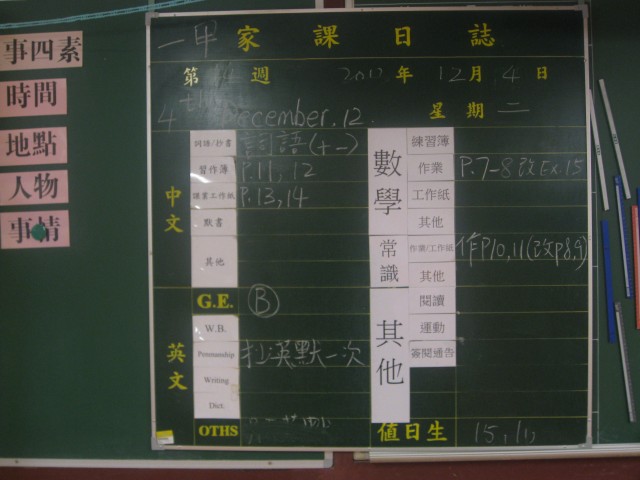 事四素
時間
地點
人物
事情
一甲 家課日誌
第14週 2012年12月4日
4th December, 12. 星期二
中文
詞語/抄書 詞語(十一)
習作簿 P.11, 12
課業工作紙 P.13, 14
默書
其他
英文
G.E. B
W.B.
Penmanship 扯英默一次
Writing
Dict.
OTHS
數學
練習簿
作業 P.7-8 改Ex.15
工作紙
其他
常識
作業/工作紙 作P10,11(改p8,9)
其他
其他
閱讀
運動
簽閱通告
值日生 15, 11